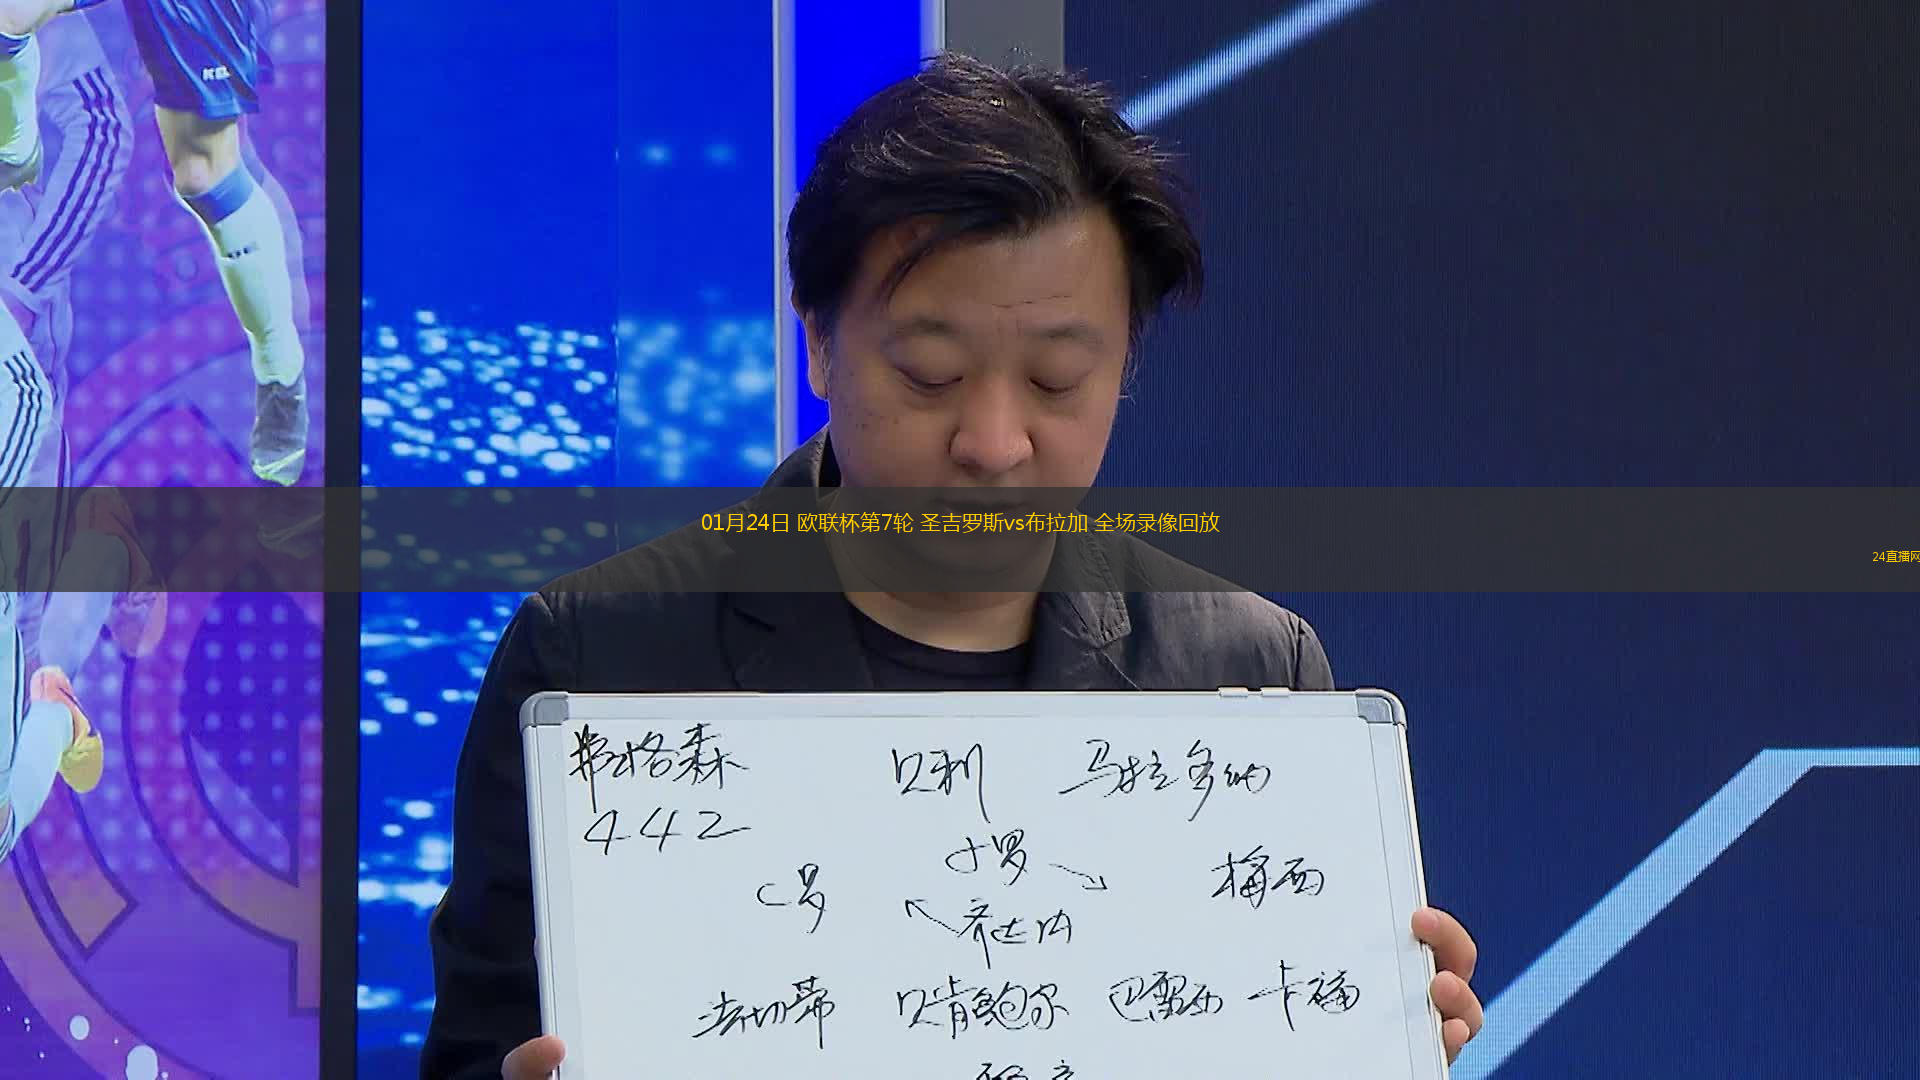 01月24日 欧联杯第7轮 圣吉罗斯vs布拉加 全场录像回放
24直播网
弗格森 贝利 马拉多纳
442
小罗
C罗 梅西
齐达内
法切蒂 贝肯鲍尔 巴雷西 卡福